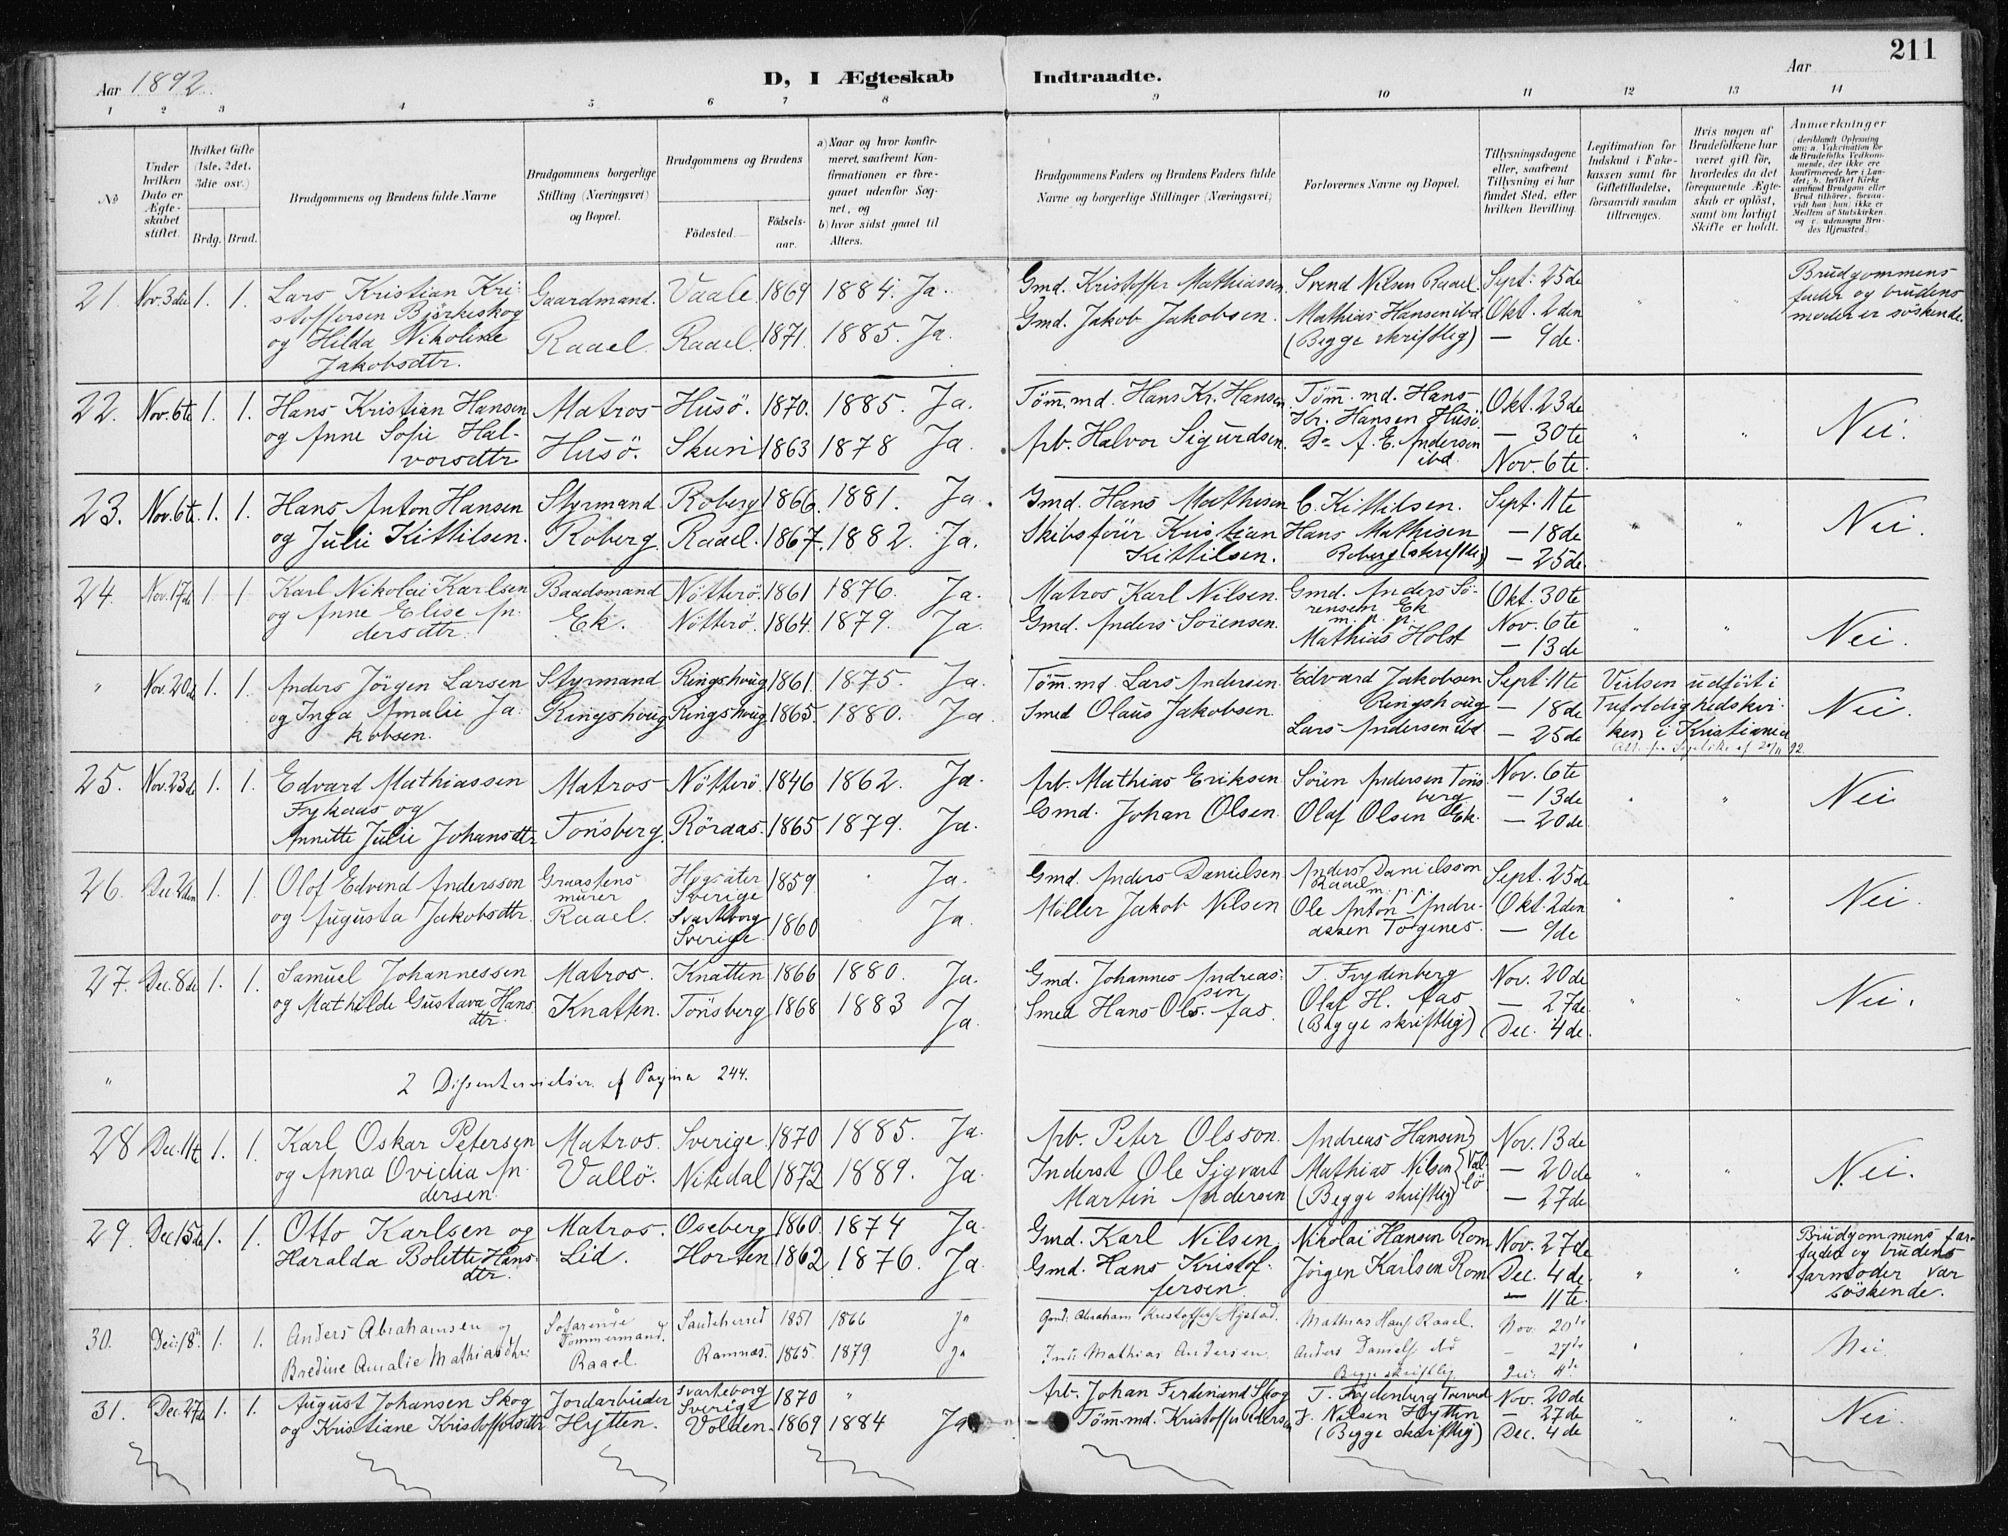 211
Aar 1892
D, I Ægteskab Indtraadte.
Aar
1 2 3 4 5 6 7 8 9 10 11 12 13 14
№
Under hvilken Dato er Ægteskabet stiftet.
Hvilket Gifte (1ste, 2det, 3die osv.)
Brdg. Brud.
Brudgommens og Brudens fulde Navne
Brudgommens borgerlige Stilling (Næringsvei) og Bopæl.
Brudgommens og Brudens
Födested.
Födselsaar.
a) Naar og hvor konfirmeret, saafremt Konfirmationen er foregaaet udenfor Sognet, og
b) hvor sidst gaaet til Alters.
Brudgommens Faders og Brudens Faders fulde Navne og borgerlige Stillinger (Næringsvei)
Forlovernes Navne og Bopæl.
Tillysningsdagene eller, saafremt Tillysning ei har fundet Sted, efter hvilken Bevilling.
Legitimation for Indskud i Enkekassen samt for Giftetilladelse, forsaavidt saadan tiltrænges.
Hvis nogen af Brudefolkene har været gift för, hvorledes da det foregaaende Ægteskab er oplöst, samt om lovligt Skifte er holdt.
Anmærkninger
21. Nov. 3die 1. 1. Lars Kristian Kri- Gaardmand. Vaale 1869 1884. Ja. Gmd. Kristoffer Mathiassen. Svend Nilsen Raael. Sept. 25de " " Brudgommens
stoffersen Bjerkeskog fader og brudens
og Hilda Nikoline Raael. Raael. 1871. 1885. Ja. Gmd. Jakob Jakobsen. Mathias Hansen ibd Okt. 2den moder er söskende.
Jakobsdtr. (Begge skriftlig) — 9de.
22. Nov. 6te 1. 1. Hans Kristian Hansen Matros Husö. 1870. 1885. Ja. Tömmd. Hans Kr. Hansen Tömmd. Hans Okt. 23de " " Nei.
Kr. Hansen Husö
og Anne Sofie Hal- Husö. Skuri 1863 1878 Ja. Arb. Halvor Sigurdsen. Do A. E. Andersen — 30te
vorsdtr ibd. Nov. 6te.
23. Nov. 6te 1. 1. Hans Anton Hansen Styrmand Roberg 1866. 1881. Ja. Gmd. Hans Mathisen C. Kittilsen. Sept. 11te " " Nei.
og Julie Kittilsen. Roberg Raael. 1867. 1882. Ja. Skibsförer Kristian Hans Mathisen — 18de
Kittilsen. Roberg (skriftlig) — 25de.
24. Nov. 17de 1 1 Karl Nikolai Karlsen Baadsmand Nötterö. 1861 1876. Ja. Matros Karl Nilsen. Gmd. Anders Sö- Okt. 30te " " Nei.
rensen Ek
og Anne Elise An- Ek. Nötterö. 1864 1879. Ja. Gmd. Anders Sörensen. m. p. p. Nov. 6te
dersdtr. Mathias Holst — 13de
" Nov. 20de 1. 1. Anders Jörgen Larsen Styrmand Ringshoug 1861. 1875. Ja. Tömmd. Lars Andersen. Edvard Jakobsen Sept. 11te Vielsen udfört i Nei.
og Inga Amalie Ja- Ringshoug Ringshoug 1865. 1880. Ja. Smed Olaus Jakobsen Ringshoug — 18de Trefoldighedskir-
kobsen. Lars Andersen ibd. — 25de ken i Kristiania
25. Nov. 23de 1. 1. Edvard Mathiassen Matros Nötterö 1846 1862. Ja. Arb. Mathias Eriksen Sören Andersen Töns- Nov. 6te " " Nei
og berg — 13de
Annette Julie Johansdtr. Tönsberg. Röraas. 1865 1879. Ja. Gmd. Johan Olsen. Olaf Olsen Ek. — 20de
26. Dec. 2den 1. 1. Olof Edvind Andersson Graastens- Högsäter 1859. " Ja. Gmd. Anders Danielsen Anders Danielsson Sept. 25de " " Nei.
murer Sverige Raael m. p. p.
og Augusta Jakobsdtr. Raael. Svarteborg 1860 Ja. Möller Jakob Nilsen Ole Anton Andre- Okt. 2den
Sverige. assen Torgines. — 9de
27. Dec. 8de 1. 1. Samuel Johannessen Matros. Knatten 1866 1880. Ja. Gmd. Johannes Andreas- T. Frydenberg Nov. 20de " " Nei.
sen
og Mathilde Gustava Hans- Knatten. Tönsberg 1868 1883 Ja. Smed Hans Ols. Aas. Olaf H. Aas — 27de
dtr. (Begge skriftlig) Dec. 4de.
" 2 Dissentervielser cf Pagina 244.
28 Dec. 11te 1. 1. Karl Oskar Petersen Matros. Sverige. 1870 1885. Ja. Arb. Peter Olsson. Andreas Hansen Nov. 13de " " Nei.
og Anna Ovidia An- Vallö. Nitedal 1872 1889. Ja. Inderst Ole Sigvart Mathias Nilsen Val- — 20de
lö
dersen. Martin Andersen (Begge skriftlig) — 27de
29. Dec. 15de 1. 1. Otto Karlsen og Matros. Oseberg 1860. 1874 Ja. Gmd. Karl Nilsen Nikolai Hansen Rom Nov. 27de " " Brudgommens far-
fader og brudens
Haralda Bolette Hans- Lid. Horten 1862 1876. Ja. Gmd. Hans Kristof- Jörgen Karlsen Rom Dec. 4de. farmoder var
dtr. fersen. — 11te. söskende.
30. Dec: 18de 1. 1. Anders Abrahamsen og Tömmermand. Sandeherred 1851 1866 Ja Gmd. Abraham Mathias Hansen Raael. Nov. 20de " " Nei.
Bredine Amalie Mathiasdtr. Raael. Ramnæs. 1865. 1879 Ja Ind: Mathias Andersen. Anders ibd — 27de
Begge skriftlig Dec: 4de
31. Dec. 27de 1. 1. August Johansen Skog Jordarbeider Svarteborg 1870 " Arb. Johan Ferdinand Skog T. Frydenberg Nov. 20de " " Nei.
Sverige
og Kristiane Kristoffersdtr Hytten. Volden. 1869 1884 Ja Tömmd. Kristoffer J. Nilsen Hytten — 27de
(Begge skriftlig) Dec. 4de